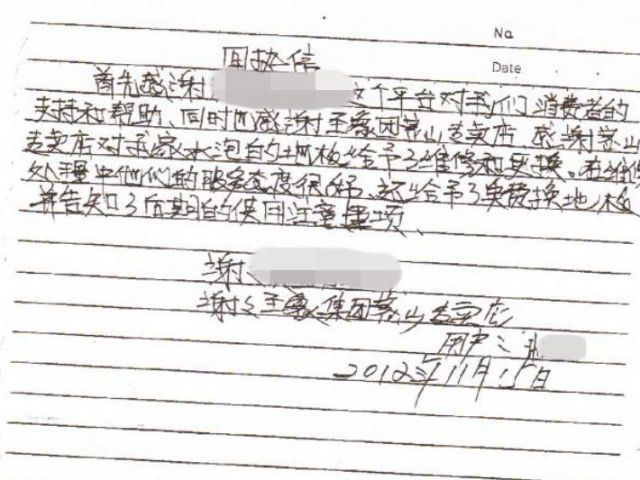 No
Date
回执信
首先感谢 这个平台对我们消费者的
支持和帮助、同时也感谢玉象团萧山专卖店 感谢萧山
专卖店对我家水泡的地板给予了维修和更换。在维修
处理中他们的服务态度很好、还给予了免费换地板
并告知了后期的使用注意事项、
谢
谢谢 集团萧山专卖店
用户：
2012年11月15日